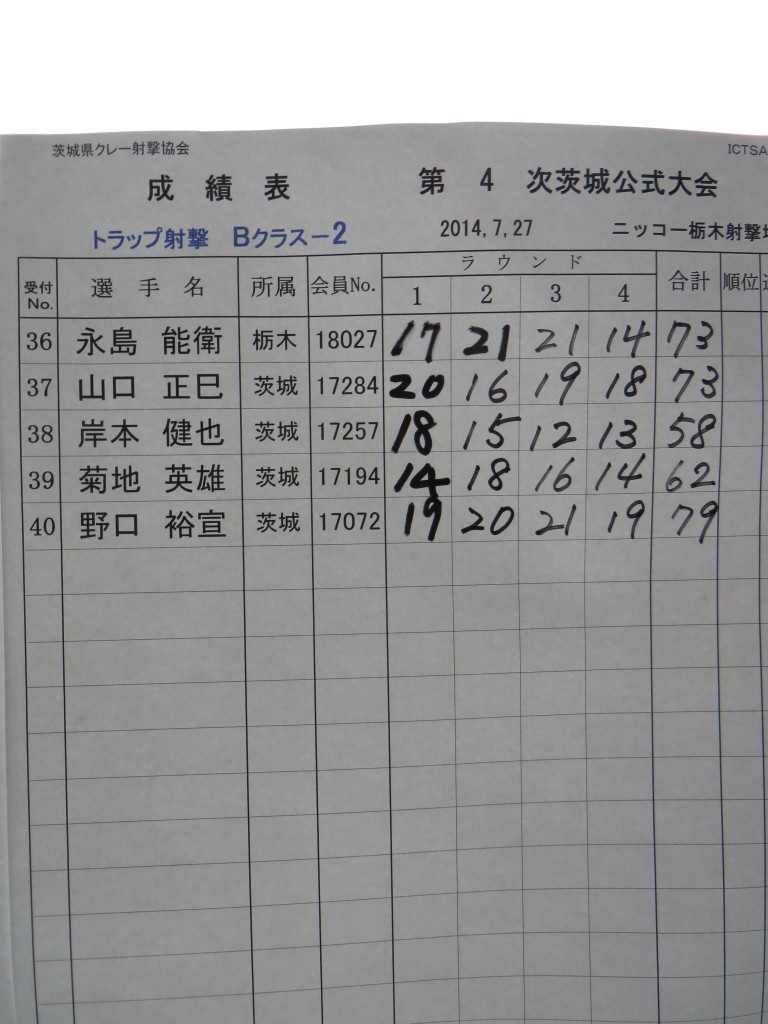 茨城県クレー射撃協会 ICTSA
成績表 第 4 次茨城公式大会
トラップ射撃 Bクラス－2 2014,7,27 ニッコー栃木射撃場
受付No. 選手名 所属 会員No. ラウンド 合計 順位
1 2 3 4
36 永島 能衛 栃木 18027 17 21 21 14 73
37 山口 正巳 茨城 17284 20 16 19 18 73
38 岸本 健也 茨城 17257 18 15 12 13 58
39 菊地 英雄 茨城 17194 14 18 16 14 62
40 野口 裕宣 茨城 17072 19 20 21 19 79